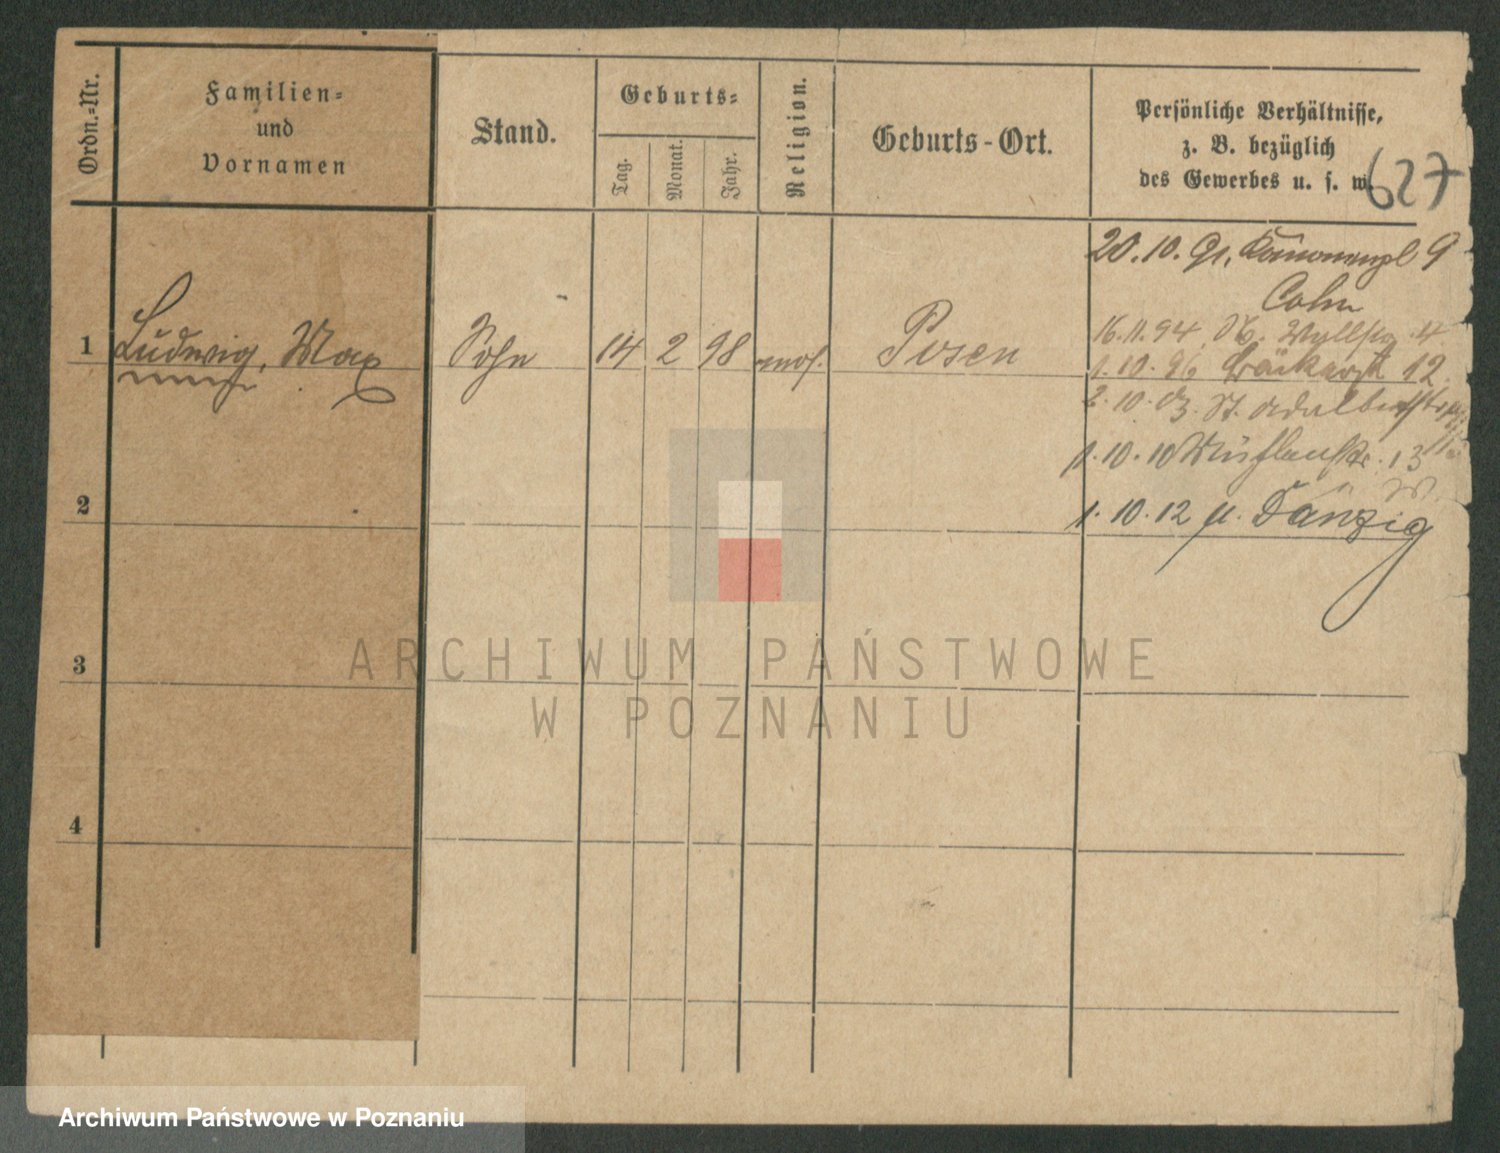 Ordn.-Nr.
Familien-
und
Vornamen
Stand.
Geburts-
Tag.
Monat.
Jahr.
Religion.
Geburts-Ort.
Persönliche Verhältnisse,
z. B. bezüglich
des Gewerbes u. s. w.
627
20. 10. 91. 9
Cohn
1 Ludwig, Max Sohn 14 2 98 mos. Posen
16. 11. 94 4
1. 10. 96 12
2. 10. 03. St. Adalbertstr
1. 10. 10 13
1. 10. 12 n. Danzig
2
3
4
ARCHIWUM PAŃSTWOWE
W POZNANIU
Archiwum Państwowe w Poznaniu